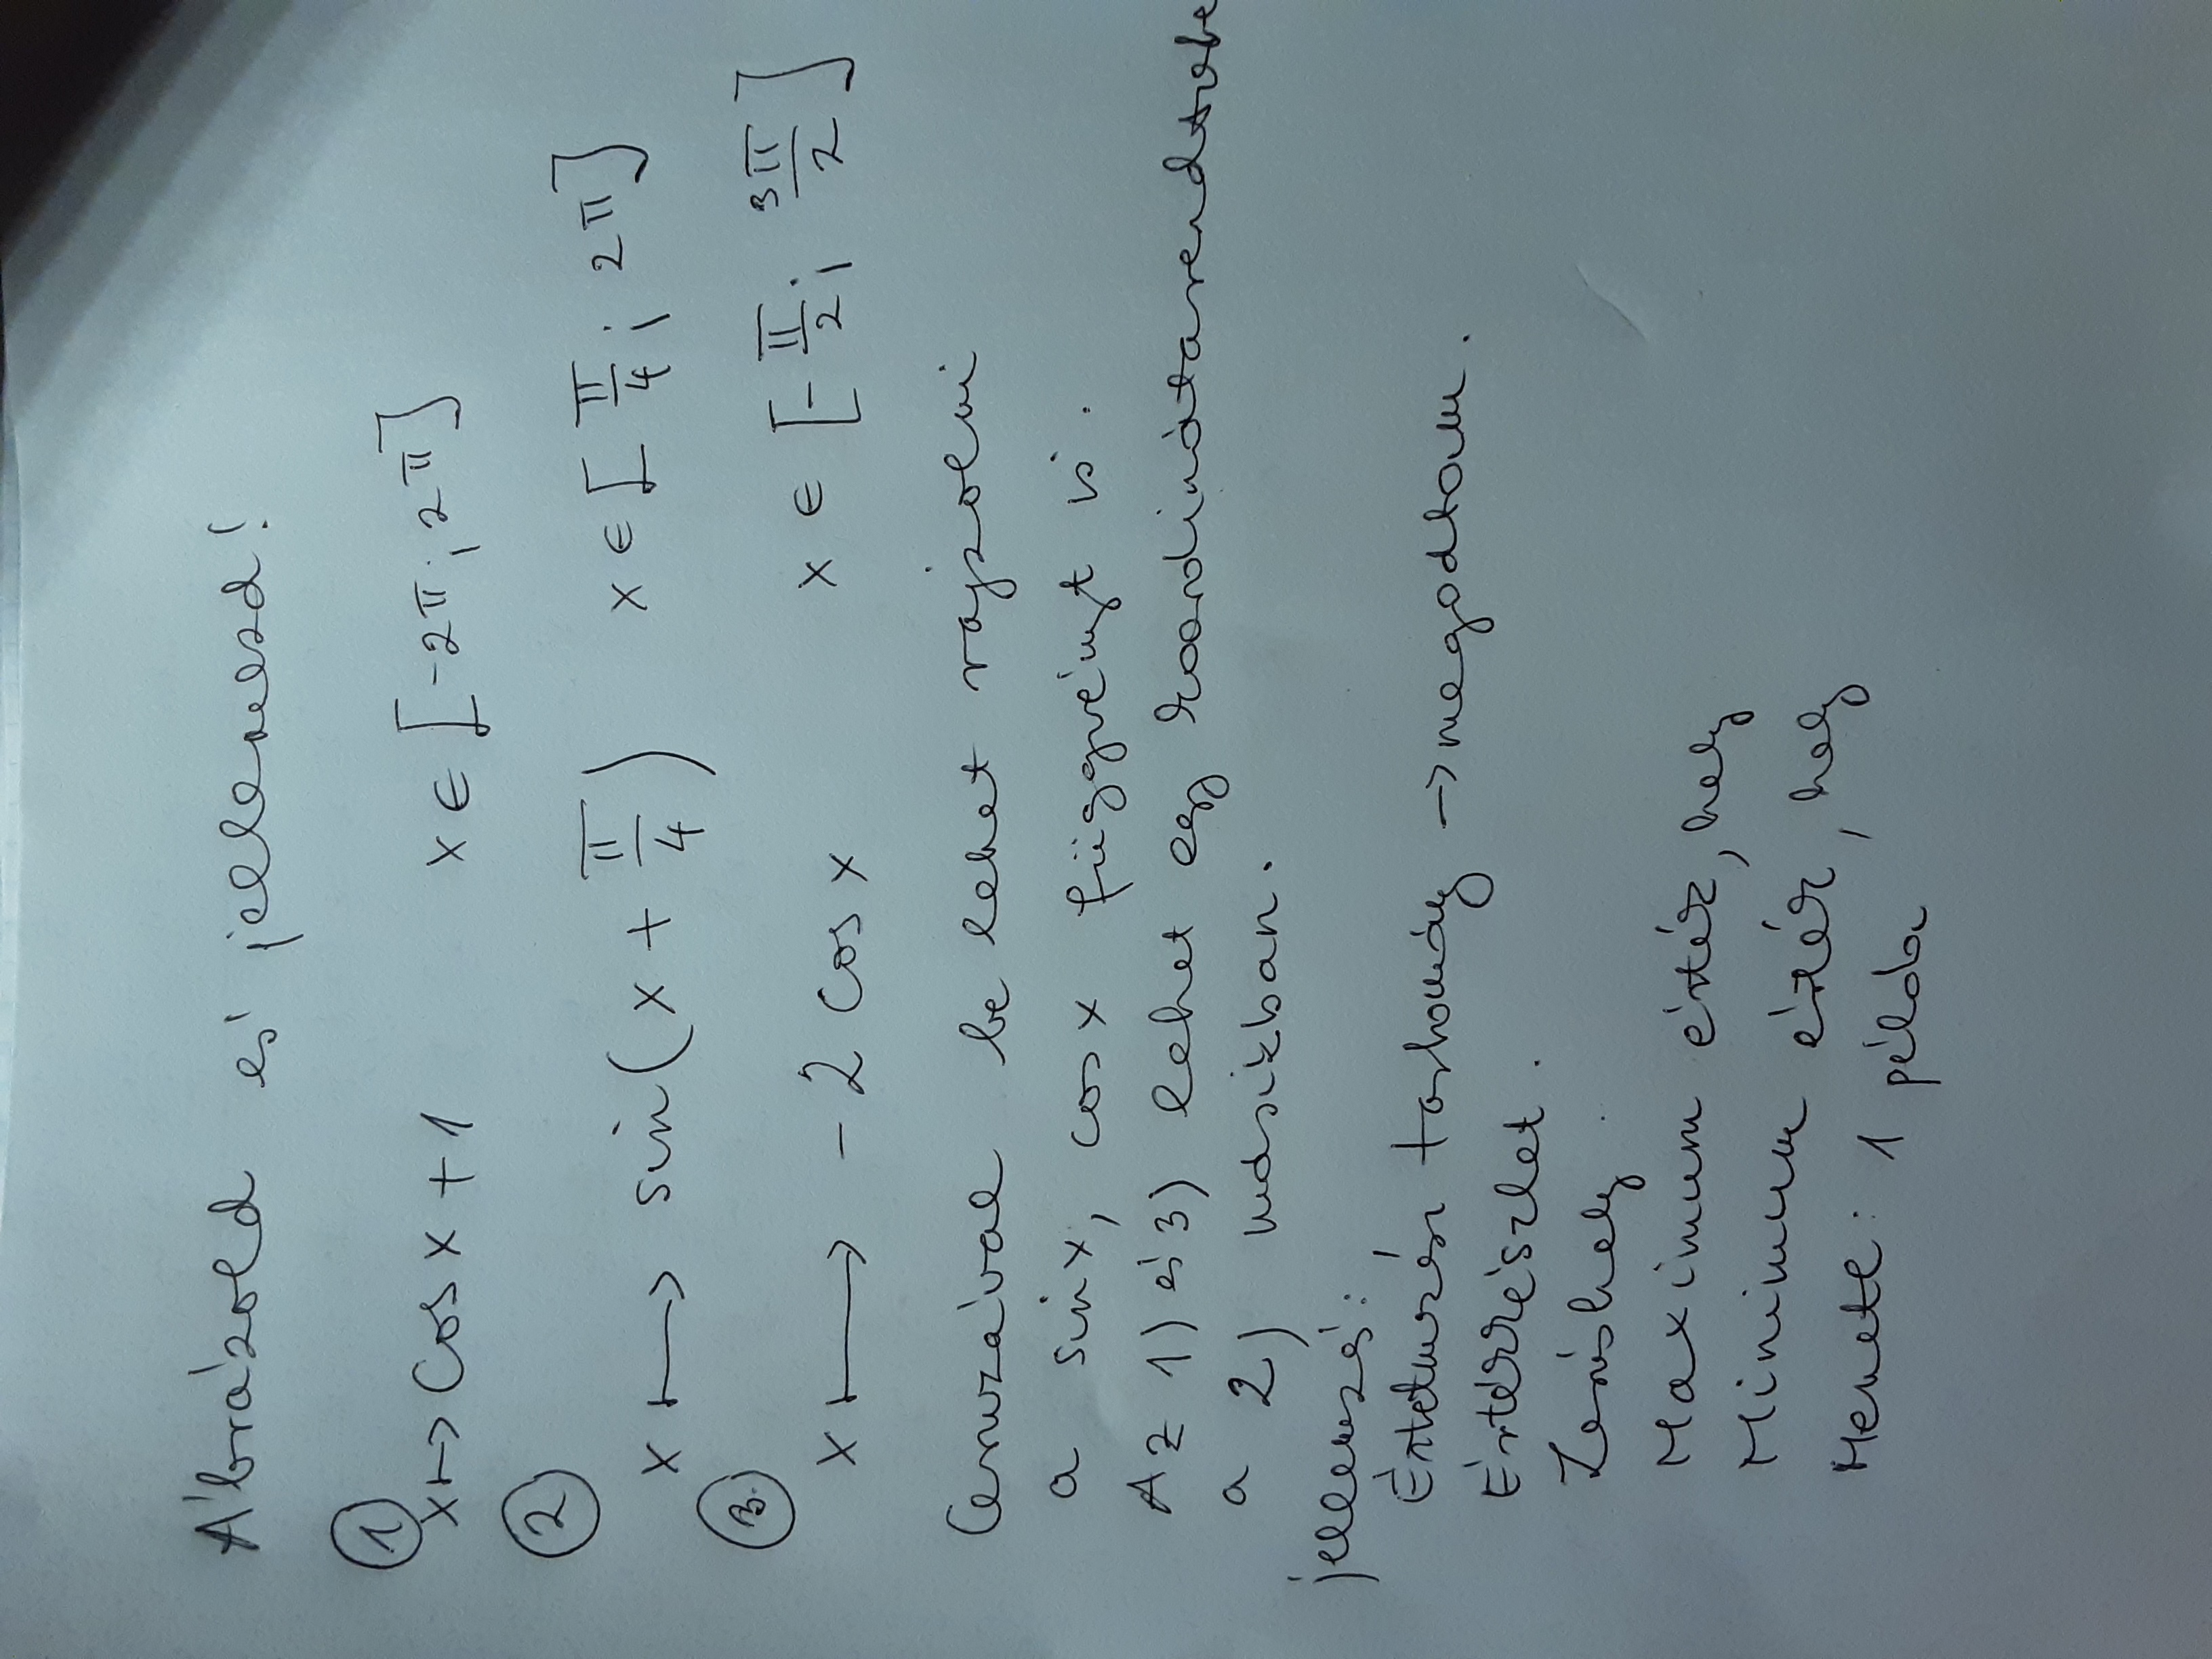 Ábrázold és jellemezd!
① x ↦ cos x + 1 x ∈ [-2π; 2π]
② x ↦ sin(x + π/4) x ∈ [π/4; 2π]
③ x ↦ -2 cos x x ∈ [-π/2; 3π/2]
Ceruzával be lehet rajzolni
a sin x, cos x függvényt is.
Az 1) és 3) lehet egy koordinátarendszerbe
a 2) másikban.
jellemzés:
Értelmezési tartomány → megadtam.
Értékkészlet.
Zérushely.
Maximum érték, hely
Minimum érték, hely
Menete: 1 példa